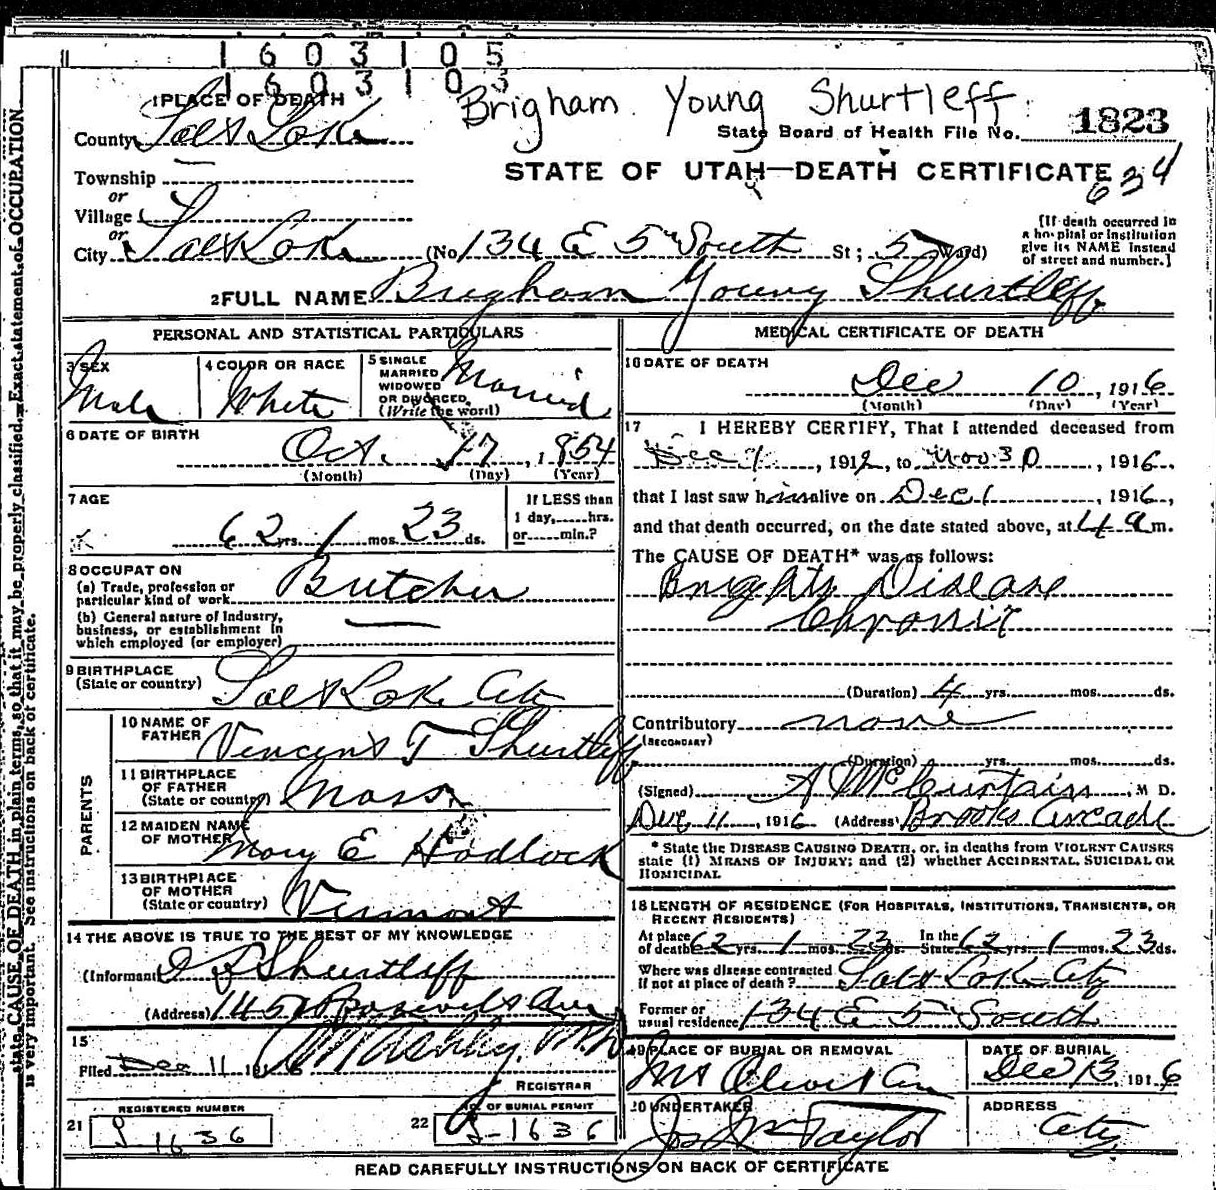 1 6 0 3 1 0 5
1 6 0 3 1 0 3
Brigham Young Shurtleff
1 PLACE OF DEATH
County Salt Lake
State Board of Health File No. 1823
STATE OF UTAH—DEATH CERTIFICATE 634
Township
or
Village
or
City Salt Lake (No 134 E 5th South St; 5 Ward)
[If death occurred in
a hospital or institution
give its NAME instead
of street and number.]
2 FULL NAME Brigham Young Shurtleff
PERSONAL AND STATISTICAL PARTICULARS
3 SEX
Male
4 COLOR OR RACE
White
5 SINGLE
MARRIED
WIDOWED
OR DIVORCED
(Write the word)
Married
6 DATE OF BIRTH
Oct. 17, 1854
(Month) (Day) (Year)
7 AGE
62 yrs. 1 mos. 23 ds.
If LESS than
1 day,......hrs.
or......min.?
8 OCCUPATION
(a) Trade, profession or
particular kind of work Butcher
(b) General nature of Industry,
business, or establishment in
which employed (or employer)
9 BIRTHPLACE
(State or country) Salt Lake City
PARENTS
10 NAME OF
FATHER Vincent T Shurtleff
11 BIRTHPLACE
OF FATHER
(State or country) Mass.
12 MAIDEN NAME
OF MOTHER Mary E Hadlock
13 BIRTHPLACE
OF MOTHER
(State or country) Vermont
14 THE ABOVE IS TRUE TO THE BEST OF MY KNOWLEDGE
(Informant Shurtleff
(Address) Roosevelt Ave
15
Filed Dec 11 1916 M.D.
REGISTRAR
REGISTERED NUMBER
21 S-1636
NO. OF BURIAL PERMIT
22 S-1636
MEDICAL CERTIFICATE OF DEATH
16 DATE OF DEATH
Dec 10, 1916
(Month) (Day) (Year)
17 I HEREBY CERTIFY, That I attended deceased from
Dec 1, 1912, to Nov 30, 1916,
that I last saw him alive on Dec 1, 1916,
and that death occurred, on the date stated above, at 4 a m.
The CAUSE OF DEATH* was as follows:
Brights Disease
Chronic
(Duration) 4 yrs. mos. ds.
Contributory none
(SECONDARY)
(Duration) yrs. mos. ds.
(Signed) M D.
Dec 11, 1916 (Address) Brooks Arcade
* State the DISEASE CAUSING DEATH, or, in deaths from VIOLENT CAUSES
state (1) MEANS OF INJURY; and (2) whether ACCIDENTAL, SUICIDAL OR
HOMICIDAL
18 LENGTH OF RESIDENCE (FOR HOSPITALS, INSTITUTIONS, TRANSIENTS, OR
RECENT RESIDENTS)
At place In the
of death 62 yrs. 1 mos. 23 ds. State 62 yrs. 1 mos. 23 ds.
Where was disease contracted
if not at place of death? Salt Lake City
Former or
usual residence 134 E 5 South
19 PLACE OF BURIAL OR REMOVAL
Mt Olivet Cem
DATE OF BURIAL
Dec 13, 1916
20 UNDERTAKER
Jos Wm Taylor
ADDRESS
City
READ CAREFULLY INSTRUCTIONS ON BACK OF CERTIFICATE
state CAUSE OF DEATH in plain terms, so that it may be properly classified. Exact statement of OCCUPATION
is very important. See instructions on back of certificate.